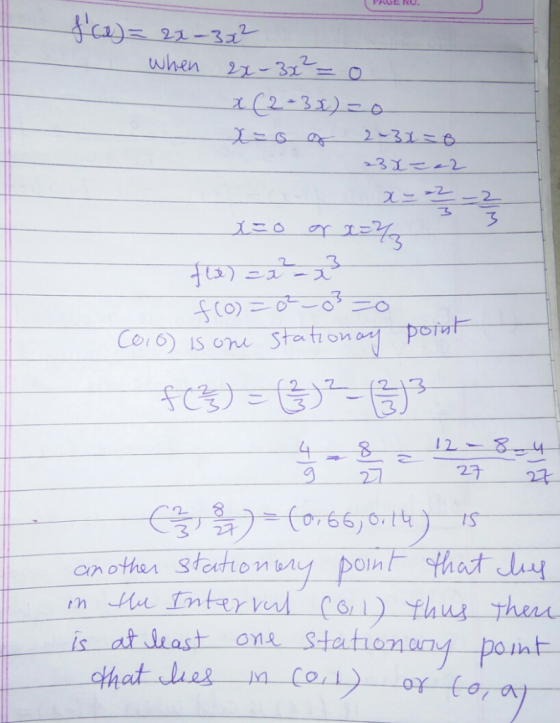 PAGE NO.
f'(x) = 2x - 3x²
when 2x - 3x² = 0
x(2 - 3x) = 0
x = 0 or 2 - 3x = 0
-3x = -2
x = -2/3 = 2/3
x = 0 or x = 2/3
f(x) = x² - x³
f(0) = 0² - 0³ = 0
(0,0) is one stationary point
f(2/3) = (2/3)² - (2/3)³
4/9 - 8/27 = (12 - 8)/27 = 4/27
(2/3, 8/27) = (0.66, 0.14) is
another stationary point that lies
in the Interval (0,1) thus there
is at least one stationary point
that lies in (0,1) or (0,a)